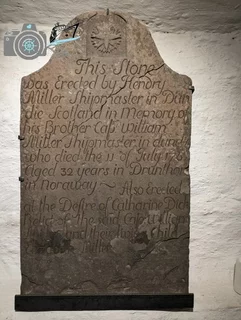 This Stone
was Erected by Hendry
Miller Shipmaster in Dun
die Scotland in Memory of
his Brother Cap William
Miller Shipmaster in
who died the 11 of July
Aged 32 years in Dranthon
in Noraway ~ Also Erected
at the Desire of Catharine
the Cap William
and their Child